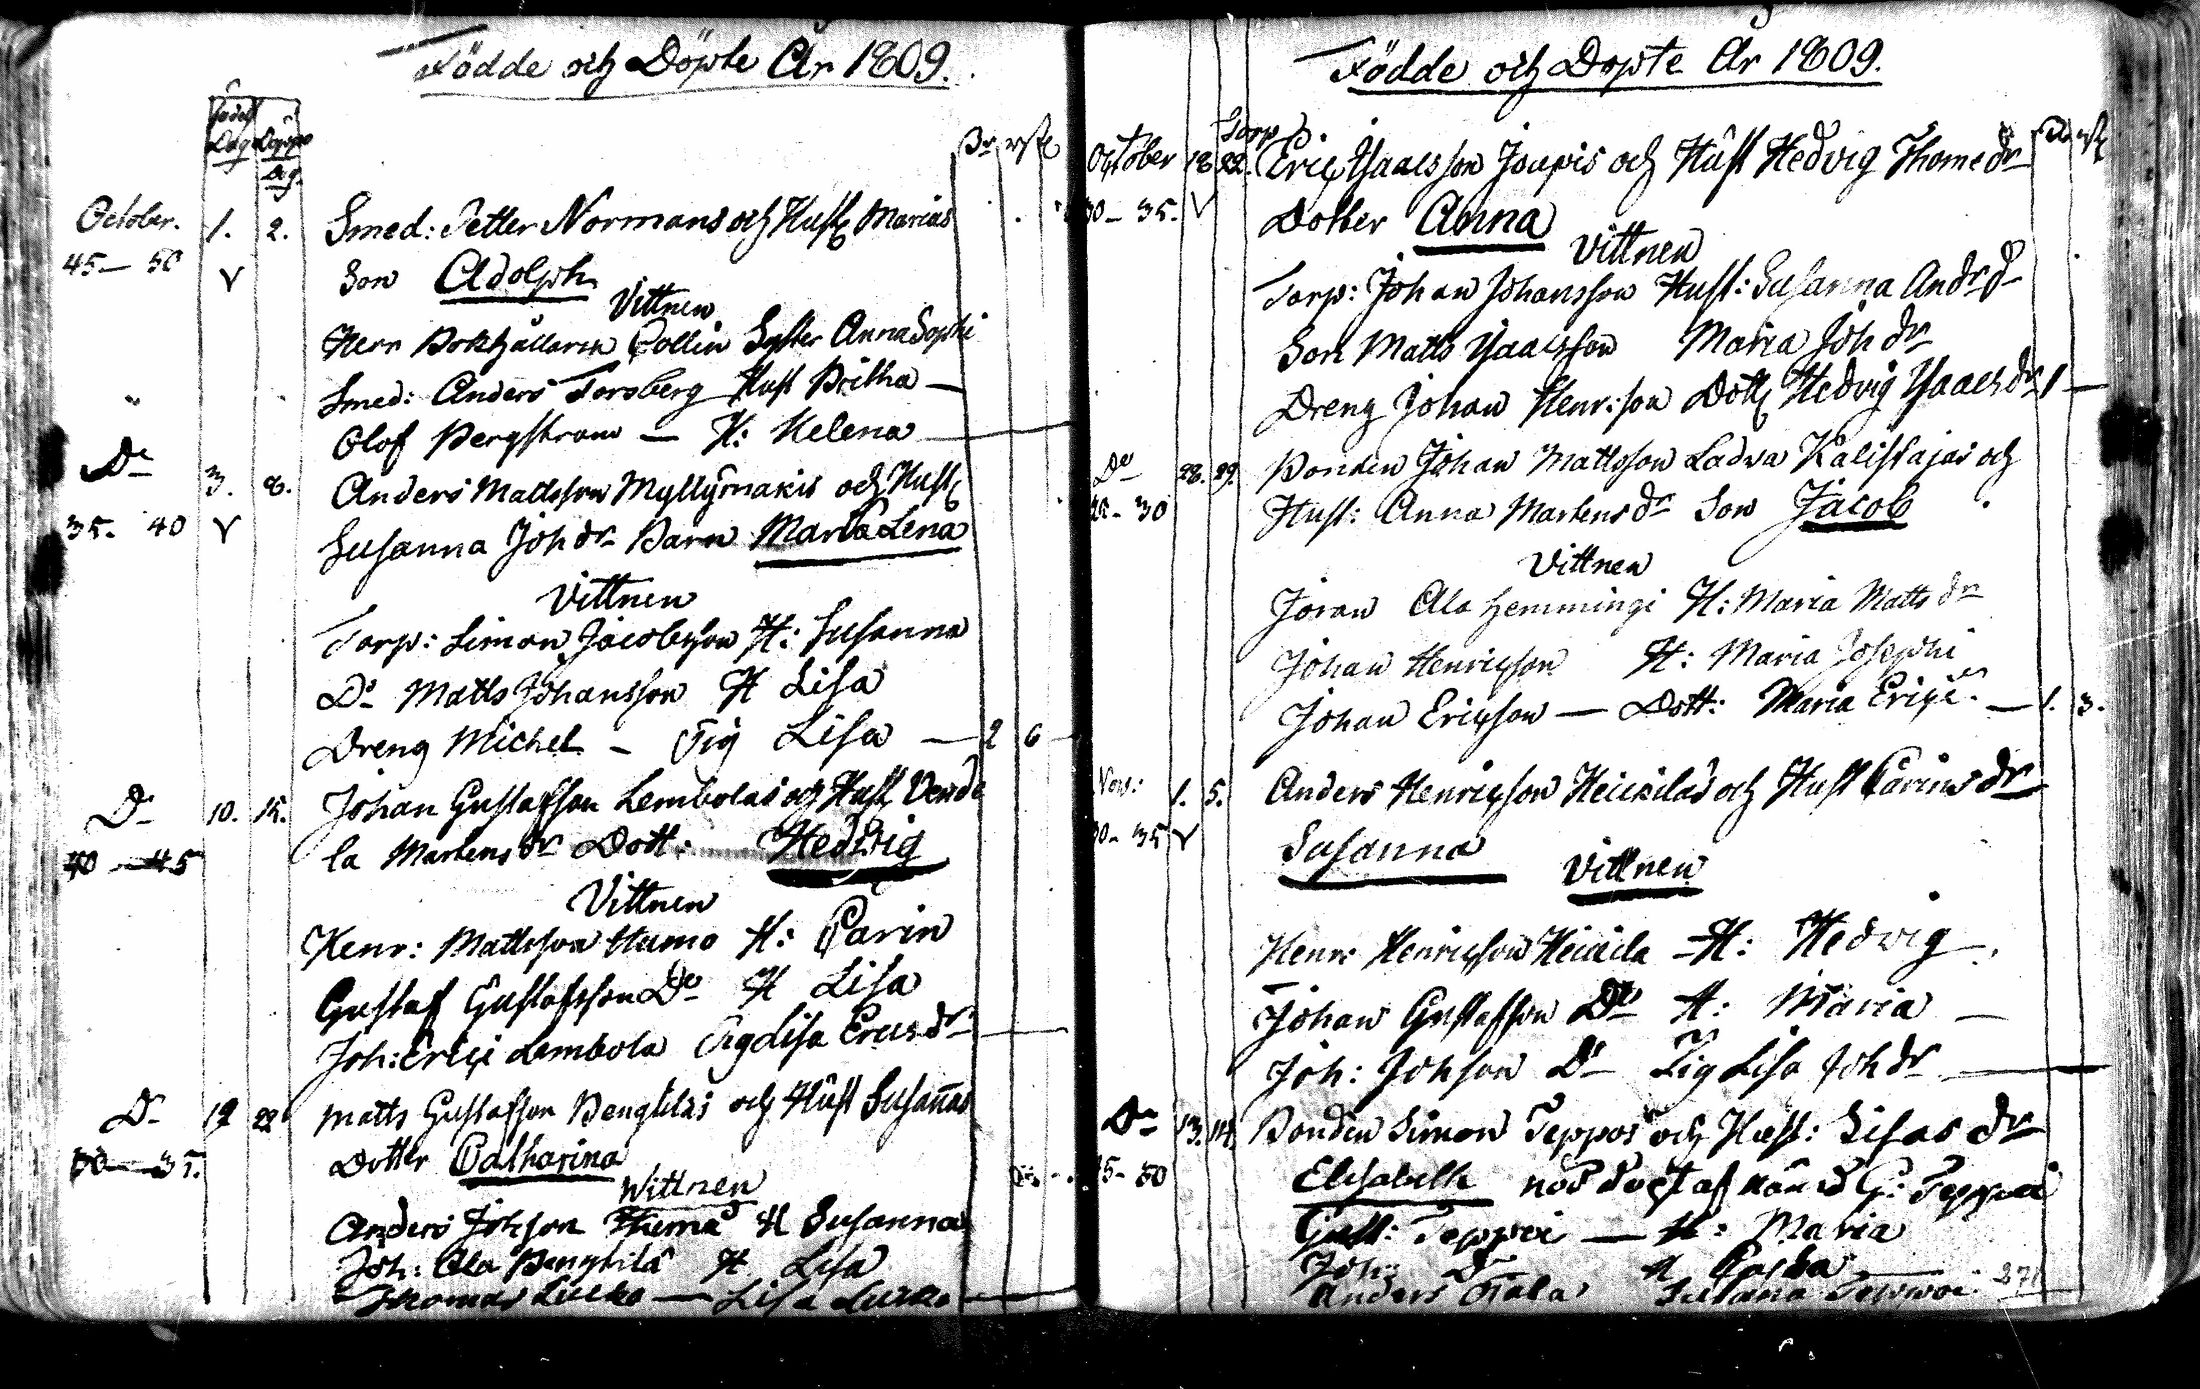 Födde och Döpte År 1809.
Födel Dag Döpse Dag
October. 1. 2. Smed: Petter Normans och Hust Marias
45 — 50 V Son Adolph
Vittnen
Herr Bokhållaren Collin Syster Anna Sophi
Smed: Anders Forsberg Hust Britha —
Olof Bergstrom — H: Helena
Do 3. 8. Anders Mattsson Myllymäkis och Hust
35. 40 V Susanna Joh dr Barn Maria Lena
Vittnen
Torp: Simon Jacobsson H: Susanna
Do Matts Johansson H Lisa
Dreng Michel — Pig Lisa — 2 6
Do 10. 15. Johan Gustafsson Lembolas och Hust Vende
40 — 45 la Martens dr Dott: Hedvig
Vittnen
Henr: Mattsson Humo H: Carin
Gustaf Gustafsson Do H Lisa
Joh: Erici Lembola Pig Lisa Ericsdr
Do 19 22 Matts Gustafsson Bengtiläs och Hust Susannas
30 — 35. Dotter Catharina
Wittnen
Anders Johsson H Susanna
Joh: Ala Bengtilä H Lisa
Thomas — Lisa
Födde och Döpte År 1809.
Torp
October 18 22. Eric Isaacsson Joupis och Hust Hedvig Thome dr
30 — 35. V Dotter Anna
Vittnen
Torp: Johan Johansson Hust: Susanna And dr
Son Matts Isaacsson Maria Joh dr
Dreng Johan Henr:son Dott Hedvig Isaacs dr 1 —
Do 28. 29. Bonden Johan Mattsson Ladva Kalistajas och
30 Hust: Anna Martens dr Son Jacob
Vittnen
Jöran Ala hemmingi H: Maria Matts dr
Johan Henricson H: Maria Josephi
Johan Ericson — Dott: Maria Erici — 1. 3.
Nov: 1. 5. Anders Henricson Heickiläs och Hust Carins dr
30 — 35 V Susanna
Vittnen
Henr: Henricson Heickila — H: Hedvig
Johan Gustafsson Do H: Maria —
Joh: Johson Do Pig Lisa Joh dr —
Do 13. 14. Bonden Simon Teppos och Hust: Lisas dr
45 — 50 Elisabeth nöd döpt af G: Teppoi
Gust: Teppoi — H: Maria
Joh: Do H
Anders Susana Teppoi 271